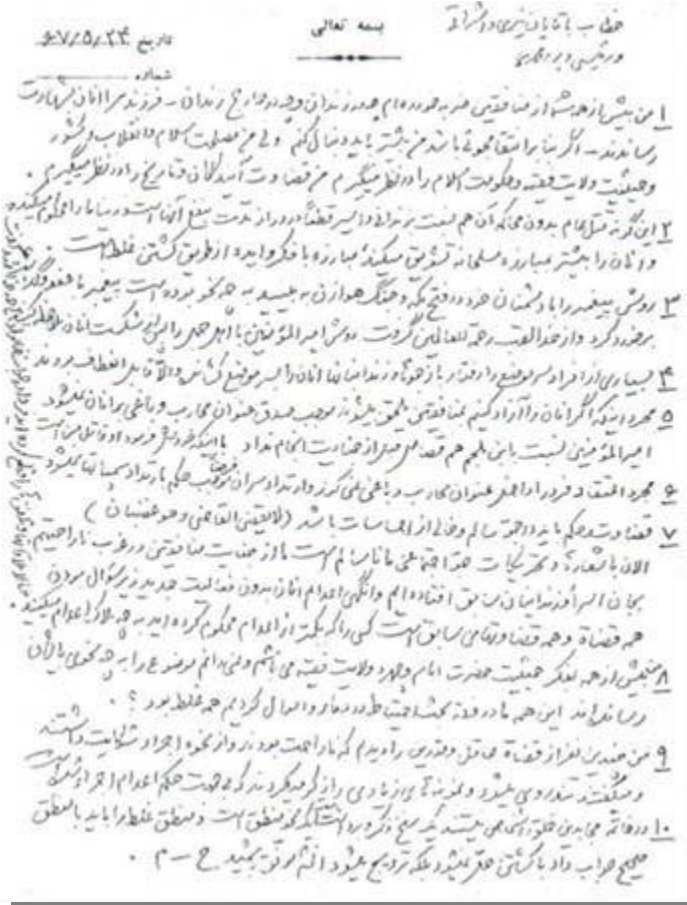 خطاب به آقایان نیری و اشراقی
و رئیسی و پورمحمدی
بسمه تعالی
تاریخ ۶۷/۵/۲۴
شماره
۱ من بیش از همه شما از منافقین ضربه خورده‌ام چه در زندان و چه در خارج زندان - فرزند مرا آنان بشهادت
رساندند - اگر بنا بر انتقامجوئی باشد من بیشتر باید دنبال کنم ولی من مصلحت اسلام و انقلاب و کشور
و حیثیت ولایت فقیه و حکومت اسلام را در نظر میگیرم من قضاوت آیندگان و تاریخ را در نظر میگیرم .
۲ این گونه قتل عام بدون محاکمه آن هم نسبت بزندانی و اسیر قطعاً در دراز مدت بنفع آنها است و دنیا ما را محکوم میکند
و آنان را بیشتر بمبارزه مسلحانه تشویق میکند مبارزه با فکر و ایده از طریق کشتن غلط است .
۳ روش پیغمبر را با دشمنان خود در فتح مکه و جنگ هوازن ببینید به چه نحو بوده است پیغمبر با عفو و گذشت
برخورد کرد و از خدا لقب رحمة للعالمین گرفت روش امیرالمؤمنین با اهل جمل را پس از شکست آنان ملاحظه کنید
۴ بسیاری از افراد سر موضع را رفتار بازجوها و زندانبانها آنان را بسر موضع کشانده والّا قابل انعطاف بودند
۵ مجرد اینکه اگر آنان را آزاد کنیم بمنافقین ملحق میشوند موجب صدق عنوان محارب و باغی بر آنان نمیشود
امیرالمؤمنین نسبت بابن ملجم هم قصاص قبل از جنایت انجام نداد با اینکه خودش فرمود او قاتل من است
۶ مجرد اعتقاد فرد را داخل عنوان محارب و باغی نمی کند و ارتداد سران فرضاً موجب حکم بارتداد سمپاتها نمیشود
۷ قضاوت و حکم باید در جو سالم و خالی از احساسات باشد (لا یقضی القاضی و هو غضبان)
الان با شعارها و تحریکات جو اجتماعی ما ناسالم است ما از جنایت منافقین در غرب ناراحتیم
بجان اسرا و زندانیان سابق افتاده‌ایم وانگهی اعدام آنان بدون فعالیت جدید زیر سؤال بردن
همه قضاة و همه قضاوتهای سابق است کسی را که بکمتر از اعدام محکوم کرده‌اید به چه ملاک اعدام میکنید
۸ من بیش از همه بفکر حیثیت حضرت امام و چهره ولایت فقیه می باشم و نمی دانم موضوع را به چه نحوی بایشان
رسانده‌اند این همه ما در فقه بحث احتیاط در دماء و اموال کردیم همه غلط بود ؟ .
۹ من چندین نفر از قضاة عاقل و متدین را دیدم که ناراحت بودند و از نحوه اجراء شکایت داشتند
و میگفتند تندروی میشود و نمونه‌های زیادی را ذکر میکردند که بی جهت حکم اعدام اجراء شده است
۱۰ در خاتمه مجاهدین خلق اشخاص نیستند یک سنخ فکر و برداشت است یک نحو منطق است و منطق غلط را باید با منطق
صحیح جواب داد با کشتن حل نمیشود بلکه ترویج میشود انشاءالله موفق باشید ح - م .